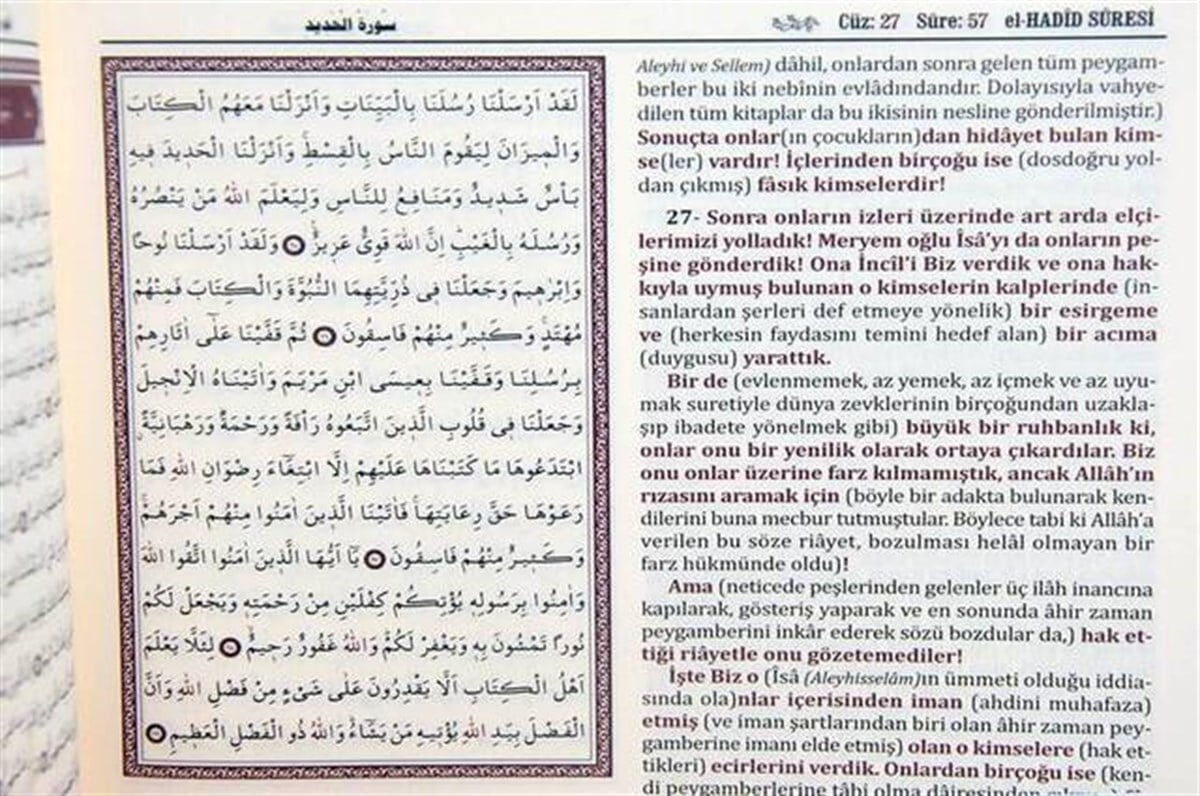 سورة الحديد
Cüz: 27 Sûre: 57 el-HADÎD SÛRESİ
لَقَدْ اَرْسَلْنَا رُسُلَنَا بِالْبَيِّنَاتِ وَاَنْزَلْنَا مَعَهُمُ الْكِتَابَ
وَالْمِيزَانَ لِيَقُومَ النَّاسُ بِالْقِسْطِۚ وَاَنْزَلْنَا الْحَدِيدَ فِيهِ
بَأْسٌ شَدِيدٌ وَمَنَافِعُ لِلنَّاسِ وَلِيَعْلَمَ اللّٰهُ مَنْ يَنْصُرُهُ
وَرُسُلَهُ بِالْغَيْبِۜ اِنَّ اللّٰهَ قَوِيٌّ عَزِيزٌ۟ ﴿٢٥﴾ وَلَقَدْ اَرْسَلْنَا نُوحًا
وَاِبْرٰهِيمَ وَجَعَلْنَا فِي ذُرِّيَّتِهِمَا النُّبُوَّةَ وَالْكِتَابَ فَمِنْهُمْ
مُهْتَدٍۚ وَكَثِيرٌ مِنْهُمْ فَاسِقُونَ ﴿٢٦﴾ ثُمَّ قَفَّيْنَا عَلٰٓى اٰثَارِهِمْ
بِرُسُلِنَا وَقَفَّيْنَا بِعِيسَى ابْنِ مَرْيَمَ وَاٰتَيْنَاهُ الْاِنْجِيلَ
وَجَعَلْنَا فِي قُلُوبِ الَّذِينَ اتَّبَعُوهُ رَأْفَةً وَرَحْمَةًۜ وَرَهْبَانِيَّةًۨ
ابْتَدَعُوهَا مَا كَتَبْنَاهَا عَلَيْهِمْ اِلَّا ابْتِغَٓاءَ رِضْوَانِ اللّٰهِ فَمَا
رَعَوْهَا حَقَّ رِعَايَتِهَاۚ فَاٰتَيْنَا الَّذِينَ اٰمَنُوا مِنْهُمْ اَجْرَهُمْۚ
وَكَثِيرٌ مِنْهُمْ فَاسِقُونَ ﴿٢٧﴾ يَٓا اَيُّهَا الَّذِينَ اٰمَنُوا اتَّقُوا اللّٰهَ
وَاٰمِنُوا بِرَسُولِهِ يُؤْتِكُمْ كِفْلَيْنِ مِنْ رَحْمَتِهِ وَيَجْعَلْ لَكُمْ
نُورًا تَمْشُونَ بِهِ وَيَغْفِرْ لَكُمْۜ وَاللّٰهُ غَفُورٌ رَحِيمٌۚ ﴿٢٨﴾ لِئَلَّا يَعْلَمَ
اَهْلُ الْكِتَابِ اَلَّا يَقْدِرُونَ عَلٰى شَيْءٍ مِنْ فَضْلِ اللّٰهِ وَاَنَّ
الْفَضْلَ بِيَدِ اللّٰهِ يُؤْتِيهِ مَنْ يَشَٓاءُۜ وَاللّٰهُ ذُو الْفَضْلِ الْعَظِيمِ ﴿٢٩﴾
Aleyhi ve Sellem) dâhil, onlardan sonra gelen tüm peygam-
berler bu iki nebînin evlâdındandır. Dolayısıyla vahye-
dilen tüm kitaplar da bu ikisinin nesline gönderilmiştir.)
Sonuçta onlar(ın çocukların)dan hidâyet bulan kim-
se(ler) vardır! İçlerinden birçoğu ise (dosdoğru yol-
dan çıkmış) fâsık kimselerdir!
27- Sonra onların izleri üzerinde art arda elçi-
lerimizi yolladık! Meryem oğlu Îsâ’yı da onların pe-
şine gönderdik! Ona İncîl’i Biz verdik ve ona hak-
kıyla uymuş bulunan o kimselerin kalplerinde (in-
sanlardan şerleri def etmeye yönelik) bir esirgeme
ve (herkesin faydasını temini hedef alan) bir acıma
(duygusu) yarattık.
Bir de (evlenmemek, az yemek, az içmek ve az uyu-
mak suretiyle dünya zevklerinin birçoğundan uzakla-
şıp ibadete yönelmek gibi) büyük bir ruhbanlık ki,
onlar onu bir yenilik olarak ortaya çıkardılar. Biz
onu onlar üzerine farz kılmamıştık, ancak Allâh’ın
rızasını aramak için (böyle bir adakta bulunarak ken-
dilerini buna mecbur tutmuştular. Böylece tabi ki Allâh’a
verilen bu söze riâyet, bozulması helâl olmayan bir
farz hükmünde oldu)!
Ama (neticede peşlerinden gelenler üç ilâh inancına
kapılarak, gösteriş yaparak ve en sonunda âhir zaman
peygamberini inkâr ederek sözü bozdular da,) hak et-
tiği riâyetle onu gözetemediler!
İşte Biz o (Îsâ (Aleyhisselâm)ın ümmeti olduğu iddia-
sında ola)nlar içerisinden iman (ahdini muhafaza)
etmiş (ve iman şartlarından biri olan âhir zaman pey-
gamberine imanı elde etmiş) olan o kimselere (hak et-
tikleri) ecirlerini verdik. Onlardan birçoğu ise (ken-
di peygamberlerine tâbi olma dâiresinden